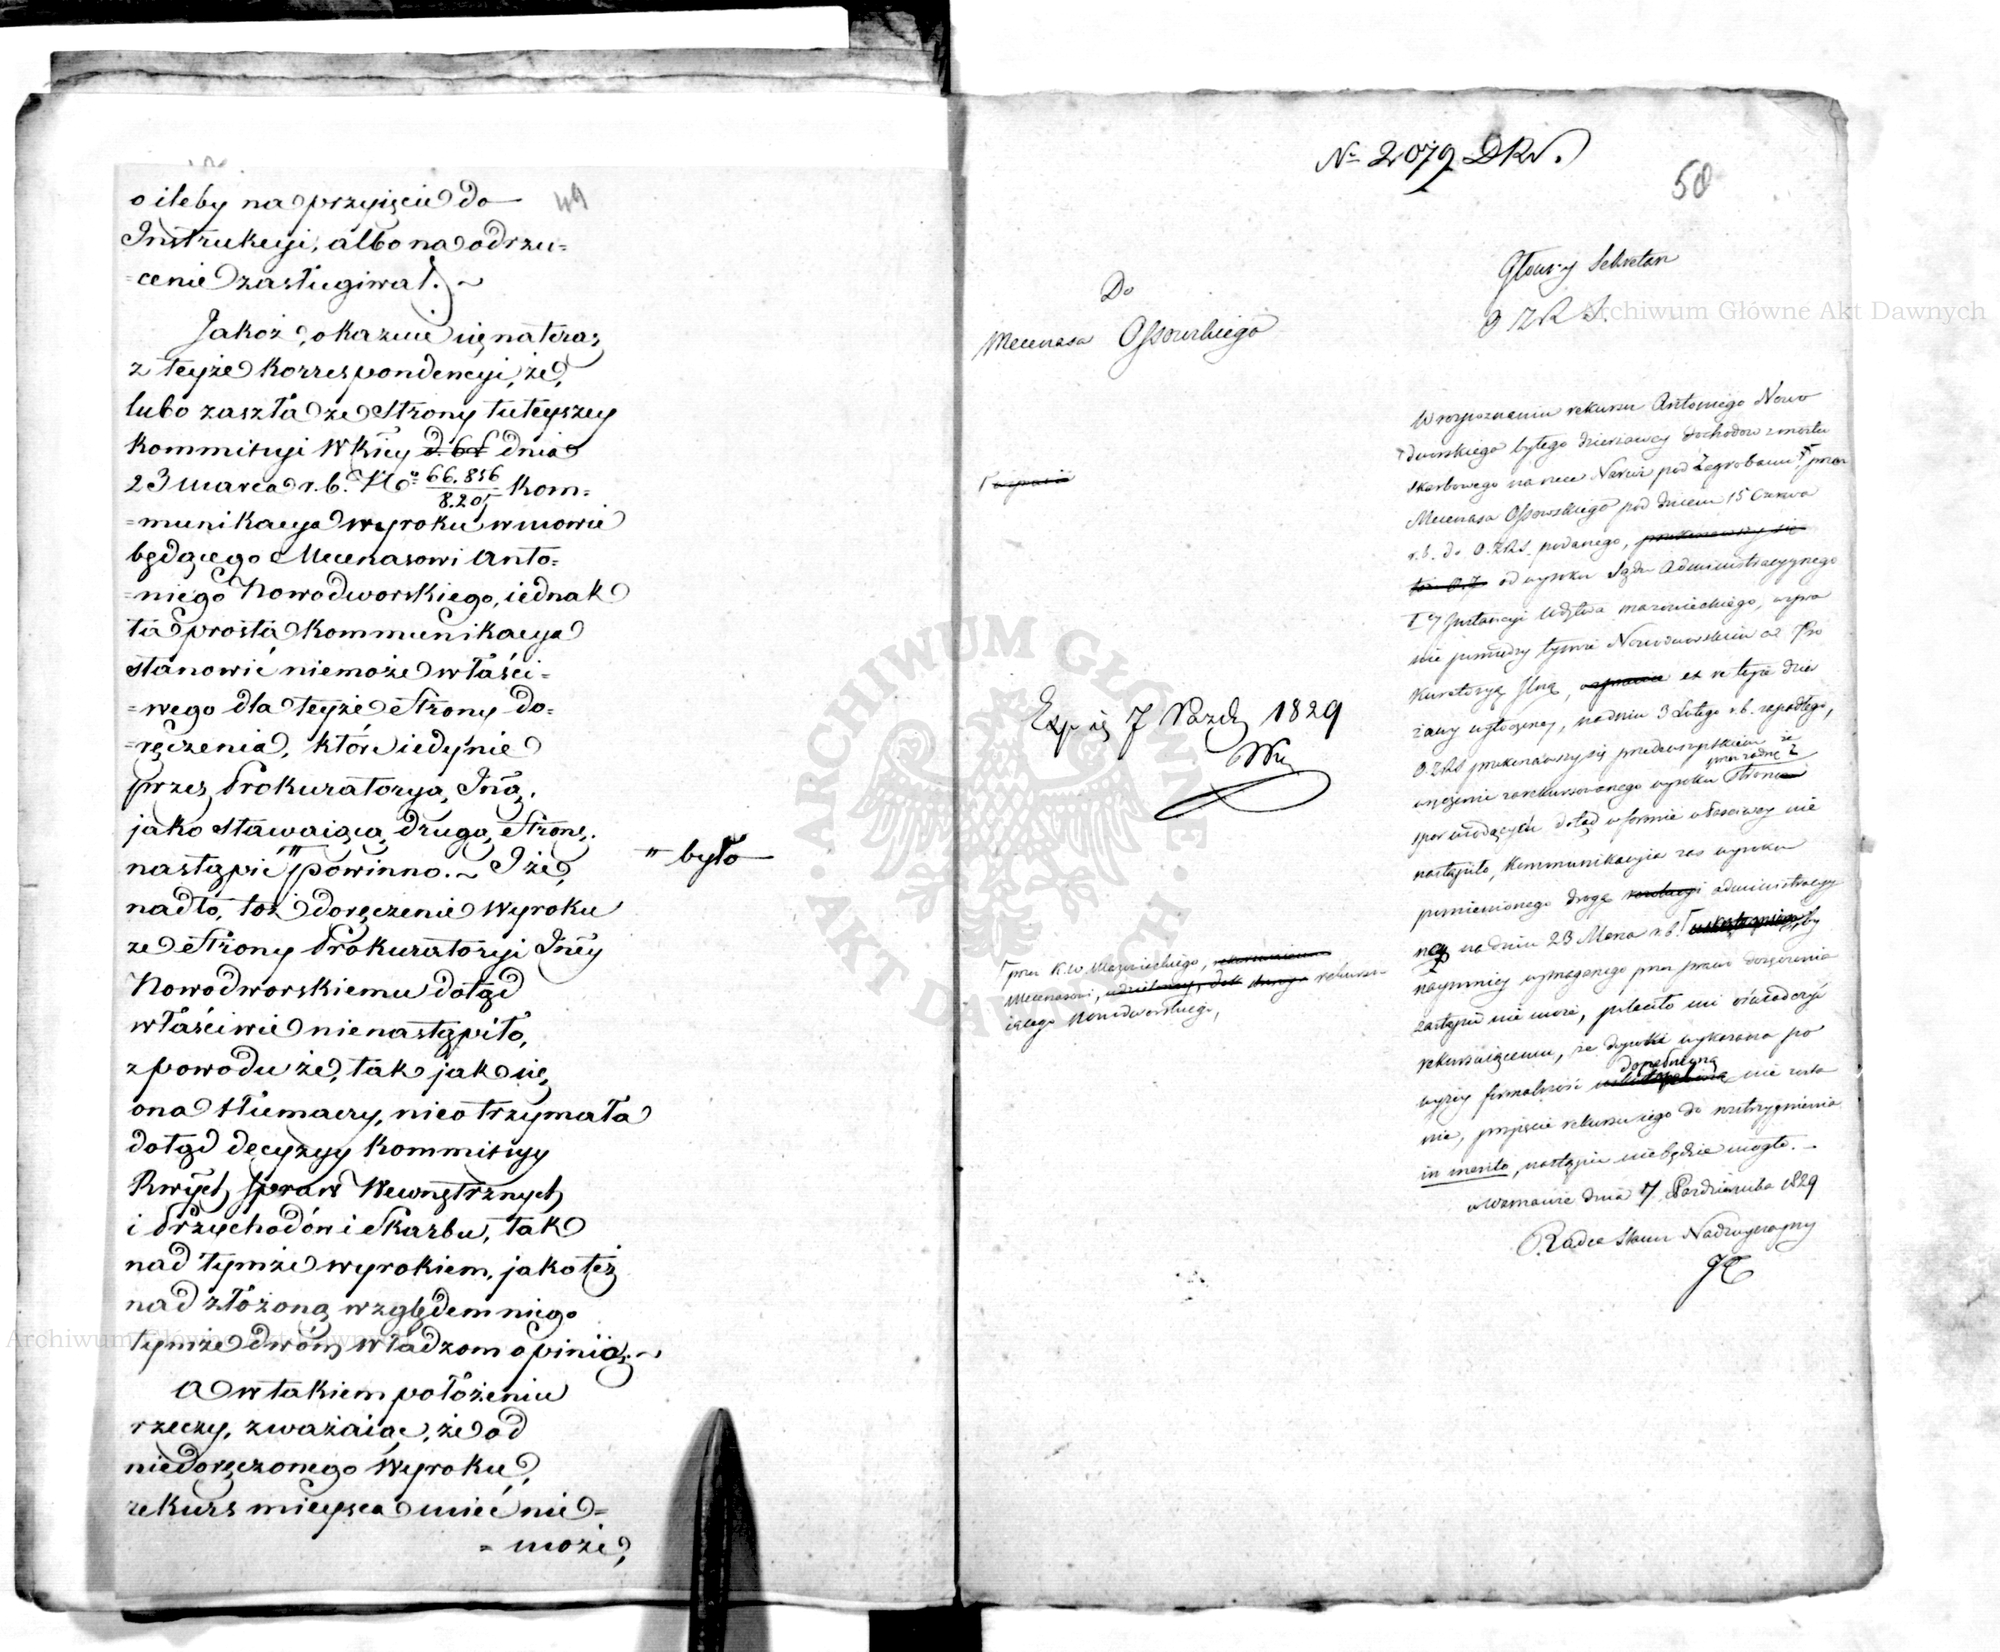 49
o ileby na przyięcie do
Instrukcyi, albo na odrzu=
=cenie zasługiwał. ~
Jakoż, okazuie się na teraz
z teyże korrespondencyi, że,
lubo zaszła ze strony tuteyszey
Kommissyi Wkiey dnia
23 marca r.b. No 66.856/8.205 Kom=
=munikacya wyroku w mowie
będącego Mecenasowi Anto=
=niego Nowodworskiego, iednak
ta prosta Kommunikacya
stanowić niemoże właści=
=wego dla teyże strony do=
=ręczenia, które iedynie
przez Prokuratoryą Jną,
jako stawaiącą drugą stronę,
nastąpić " powinno. ~ I że,
" było
nadto, toż doręczenie Wyroku
ze strony Prokuratoryi Jney
Nowodworskiemu dotąd
właściwie nienastąpiło,
z powodu że, tak jak się
ona tłumaczy, nieotrzymała
dotąd decyzyy Kommissyy
Rwych, spraw Wewnętrznych
i Przychodów i Skarbu, tak
nad tymże wyrokiem, jako też
nad złożoną względem niego
tymże dwóm władzom opinią. ~
A w takiem położeniu
rzeczy, zważaiąc, że od
niedoręczonego Wyroku,
rekurs mieysca mieć nie=
=może,
No 2079 DRS.
50
Główny Sekretarz
O Z R S.
Do
Mecenasa Ossowskiego
W rozpoznaniu rekursu Antoniego Nowo
dworskiego byłego dzierżawcy dochodów z mostu
skarbowego na rzece Narwi pod Zegrzem przez
Mecenasa Ossowskiego pod dniem 15 Czerwca
r.b. do O.ZRS. podanego, przekonawszy się
od wyroku Sądu Administracyynego
Iy Instancyi Wdztwa mazowieckiego, w spra
wie pomiędzy tymże Nowodworskim a Pro
kuratoryą Jlną, ex re teyże dzier
żawy wytoczoney, na dniu 3 Lutego r.b. zapadłego,
O.ZRS przekonawszy się przedewszystkiem że
wręczenie zarekursowanego wyroku przez stronę
spór wiodących dotąd w formie właściwey nie
nastąpiło, Kommunikacyia zaś wyroku
pomienionego drogą administracyy
ną na dniu 23 Marca r.b. by
naymniey wymaganego przez prawo doręczenia
zastąpić nie może, poleciło mi oświadczyć
rekursuiącemu, że dopóki wykazana po
wyżey formalność dopełnioną nie zosta
nie, przyięcie rekursu iego do roztrzygnienia
in merito, nastąpić nie będzie mogło. –
w Warszawie dnia 7 Października 1829
Radca Stanu Nadzwyczayny
Exp. 7 Paźdz 1829
przez K.W Mazowieckiego,
Mecenasowi, rekursu=
iącego Nowodworskiego,
ARCHIWUM GŁÓWNE AKT DAWNYCH
Archiwum Główne Akt Dawnych
Archiwum Główne Akt Dawnych